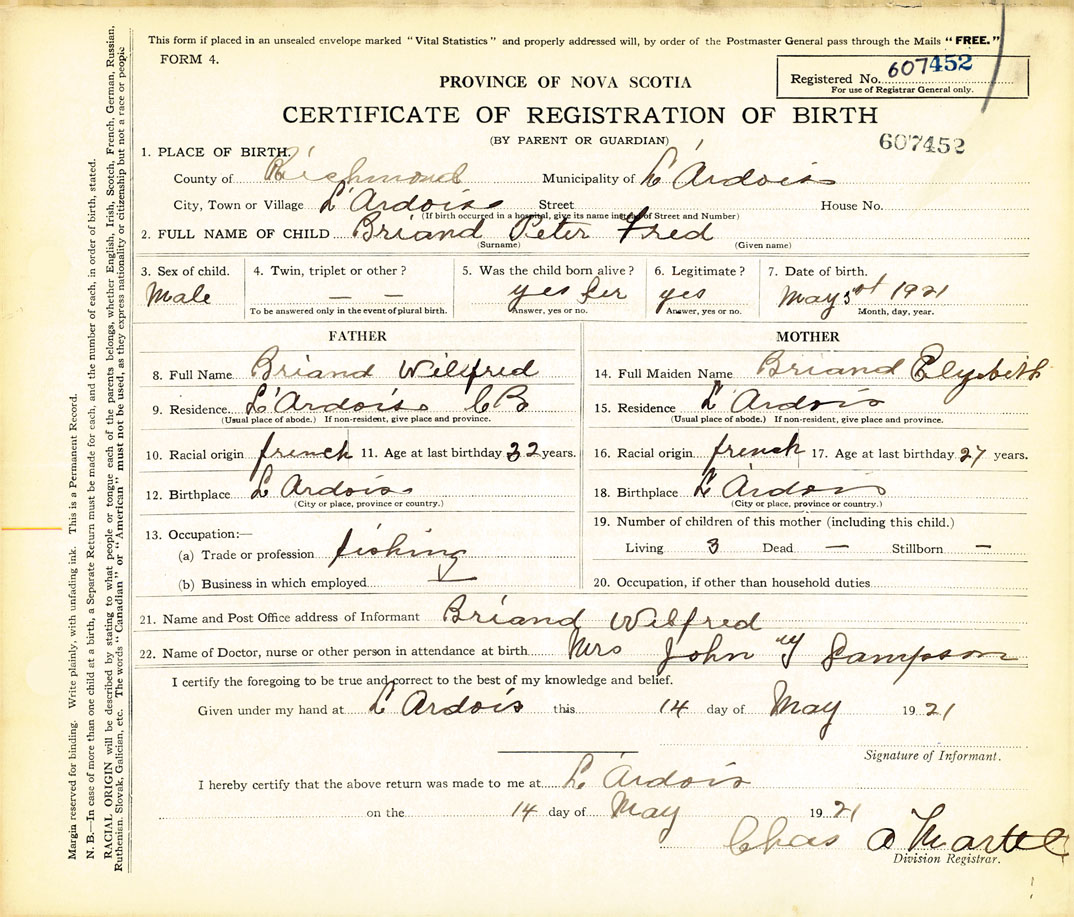 This form if placed in an unsealed envelope marked "Vital Statistics" and properly addressed will, by order of the Postmaster General pass through the Mails "FREE."
FORM 4.
Registered No. 607452
For use of Registrar General only.
PROVINCE OF NOVA SCOTIA
CERTIFICATE OF REGISTRATION OF BIRTH
(BY PARENT OR GUARDIAN)
607452
1. PLACE OF BIRTH.
County of Richmond Municipality of L'Ardois
City, Town or Village L'Ardois Street House No.
(If birth occurred in a hospital, give its name instead of Street and Number)
2. FULL NAME OF CHILD Briand Peter Fred
(Surname) (Given name)
3. Sex of child. 4. Twin, triplet or other? 5. Was the child born alive? 6. Legitimate? 7. Date of birth.
Male — — yes yes May 1921
To be answered only in the event of plural birth. Answer, yes or no. Answer, yes or no. Month, day, year.
FATHER MOTHER
8. Full Name Briand Wilfred 14. Full Maiden Name Briand Elysbith
9. Residence L'Ardoise CB 15. Residence L'Ardois
(Usual place of abode.) If non-resident, give place and province. (Usual place of abode.) If non-resident, give place and province.
10. Racial origin french 11. Age at last birthday 32 years. 16. Racial origin french 17. Age at last birthday 27 years.
12. Birthplace L'Ardois 18. Birthplace L'Ardois
(City or place, province or country.) (City or place, province or country.)
13. Occupation:— 19. Number of children of this mother (including this child.)
(a) Trade or profession fishing Living 3 Dead — Stillborn —
(b) Business in which employed 20. Occupation, if other than household duties
21. Name and Post Office address of Informant Briand Wilfred
22. Name of Doctor, nurse or other person in attendance at birth Mrs John Sampson
I certify the foregoing to be true and correct to the best of my knowledge and belief.
Given under my hand at L'Ardois this 14 day of May 1921
Signature of Informant.
I hereby certify that the above return was made to me at L'Ardois
on the 14 day of May 1921
Chas A Martel
Division Registrar.
Margin reserved for binding. Write plainly, with unfading ink. This is a Permanent Record.
N. B.—In case of more than one child at a birth, a Separate Return must be made for each, and the number of each, in order of birth, stated.
RACIAL ORIGIN will be described by stating to what people or tongue each of the parents belongs, whether English, Irish, Scotch, French, German, Russian,
Ruthenian, Slovak, Galician, etc. The words "Canadian" or "American" must not be used, as they express nationality or citizenship but not a race or people